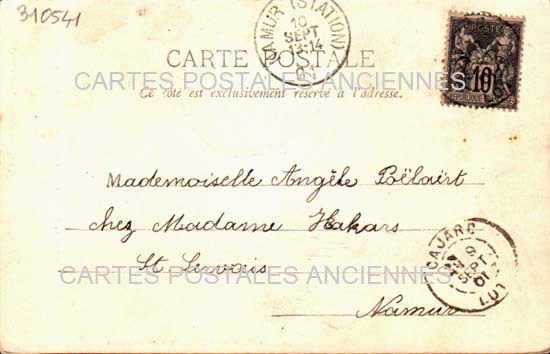 310541
NAMUR (STATION)
10
SEPT
13-14
01
CARTE POSTALE
CARTES POSTALES ANCIENNES
Ce côté est exclusivement réservé à l'adresse.
POSTE
10
Mademoiselle Angèle Poëlaërt
chez Madame Hakars
St Servais
Namur
CARTES POSTALES ANCIENNES
CAJARC
9
SEPT
01
LOT